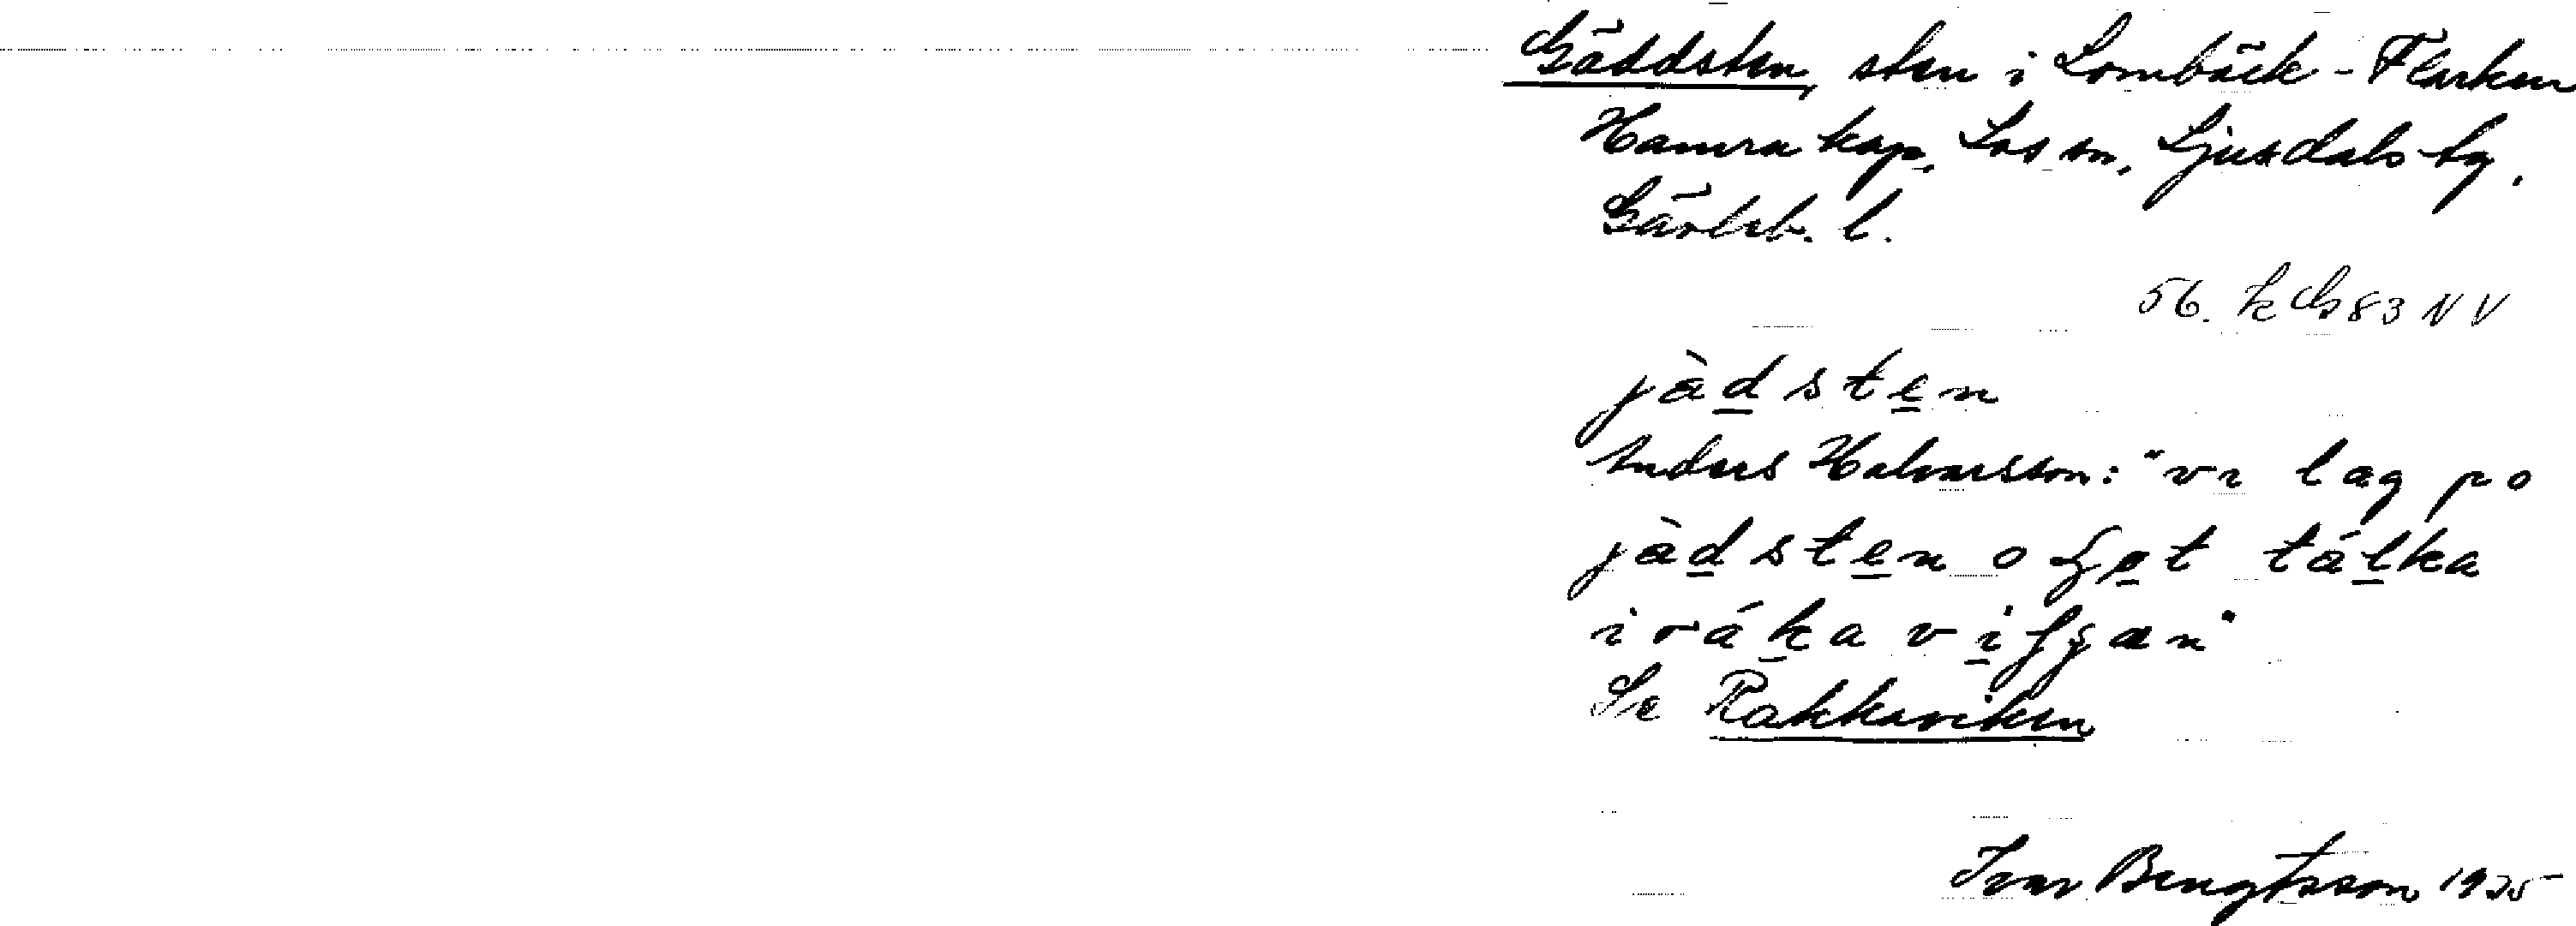 Gäddsten, sten i Lombäck-Flarken
Hamra kap. Los sn, Ljusdals tg.
Gävleb. l.
56. k Gs 83 NV
jàdsten
Anders Halvarsson: "vi lag po
jàdsten o tálka
i ráka
Se Rakkaviken
Ivar Bengtsson 1935